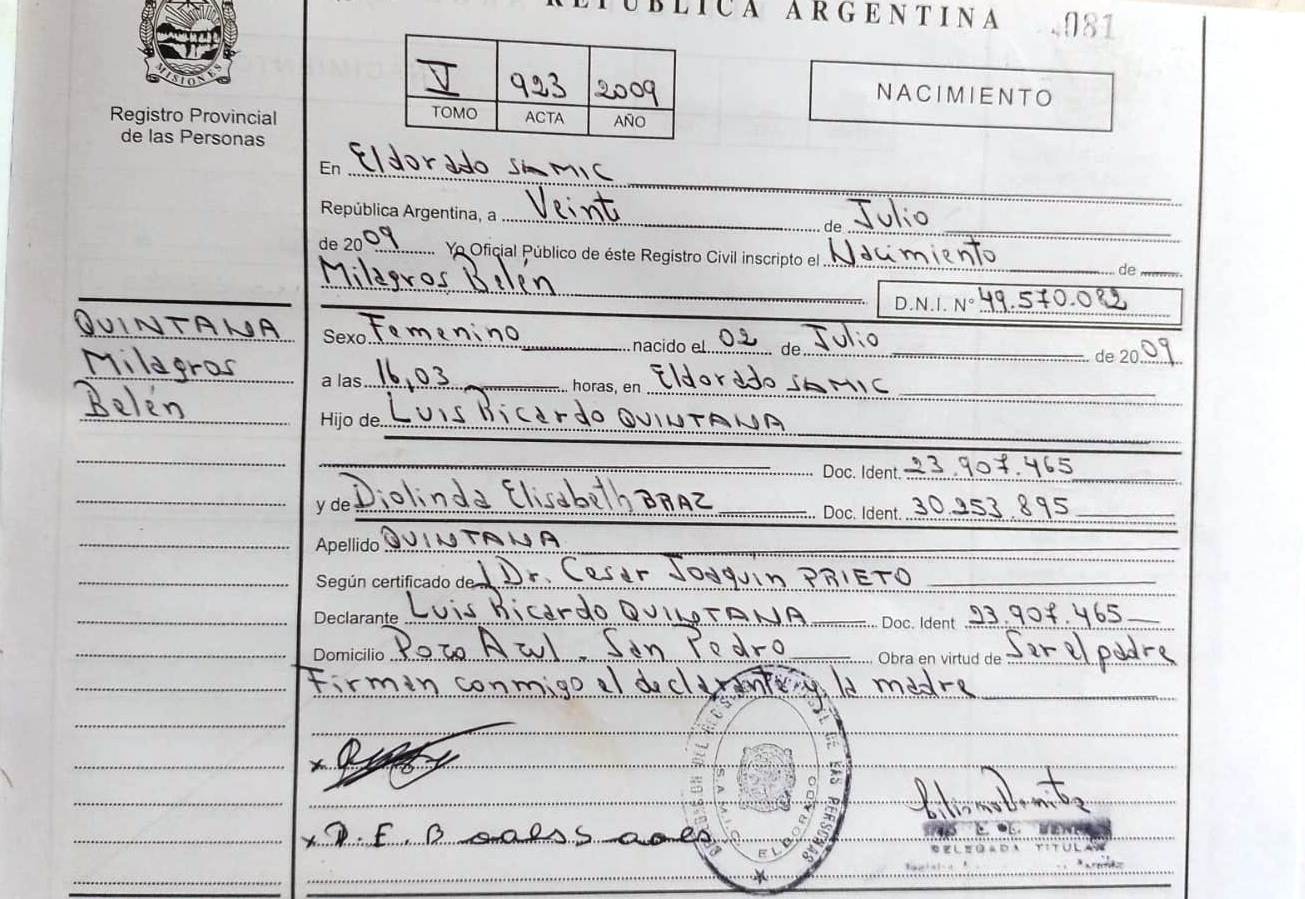 REPÚBLICA ARGENTINA
081
MISIONES
Registro Provincial
de las Personas
V 923 2009
TOMO ACTA AÑO
NACIMIENTO
En Eldorado SAMIC
República Argentina, a Veinte de Julio
de 2009 Yo Oficial Público de éste Registro Civil inscripto el Nacimiento de
Milagros Belén D.N.I. N° 49.570.082
QUINTANA
Milagros
Belén
Sexo Femenino nacido el 02 de Julio de 2009
a las 16,03 horas, en Eldorado SAMIC
Hijo de Luis Ricardo QUINTANA
Doc. Ident. 23.907.465
y de Diolinda Elisabeth BRAZ Doc. Ident. 30.253.895
Apellido QUINTANA
Según certificado del Dr. Cesar Joaquin PRIETO
Declarante Luis Ricardo QUINTANA Doc. Ident 23.907.465
Domicilio Pozo Azul - San Pedro Obra en virtud de Ser el padre
Firman conmigo el declarante y la madre
S.A.M.I.C. ELDORADO
DE LAS PERSONAS
DELEGADA TITULAR